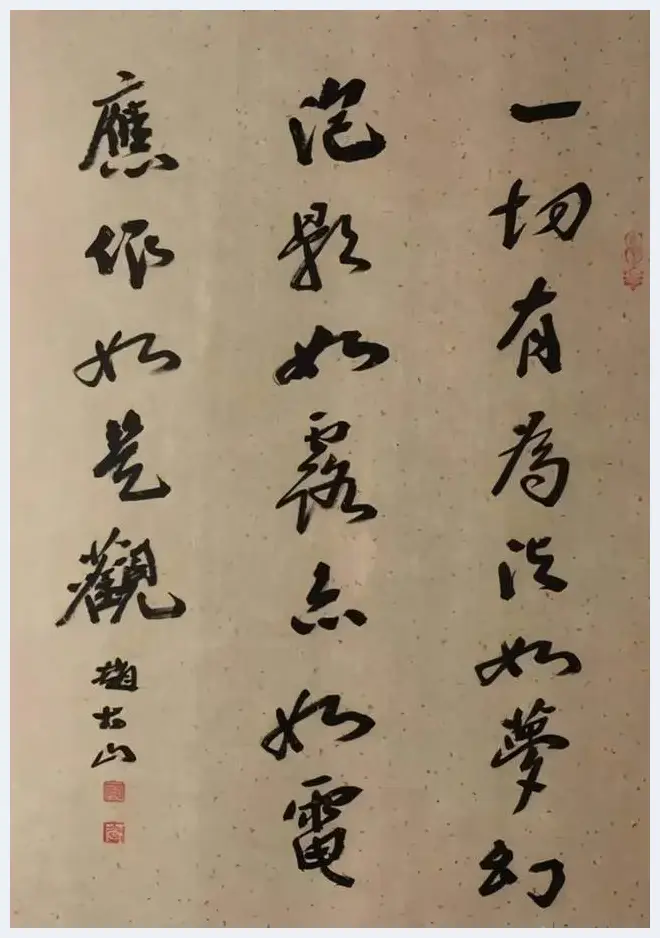 一切有為法如夢幻
泡影如露亦如電
應作如是觀
趙古山